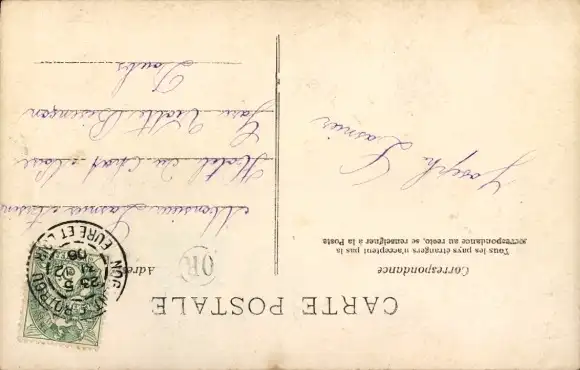 CARTE POSTALE
Correspondance
Tous les pays étrangers n'acceptent pas la
correspondance au recto, se renseigner à la Poste
Joseph Lasnier
Adres
OR
Monsieur Lasnier
Hotel du Chat
Gare Viotte Besançon
Doubs
NOGENT-LE-ROTROU
EURE ET LOIR
23 5
06